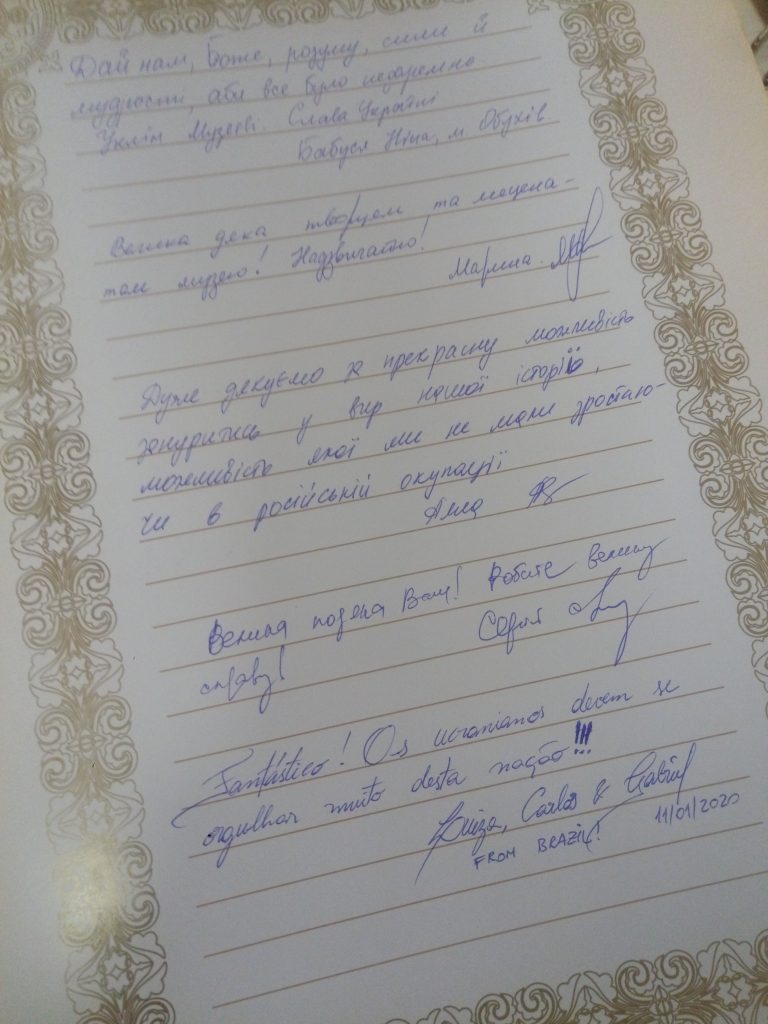 Дай нам, Боже, розуму, сили й
мудрості, аби все було недаремно
Уклін Музеєві. Слава Україні
Бабуся Ніна, м Обухів
Велика дяка творцем та мецена-
там музею! Надзвичайно!
Марина
Дуже дякуємо за прекрасну можливість
зануритись у вир нашої історії,
можливість якої ми не мали зростаю-
чи в російській окупації
Алла
Велика подяка Вам! Робите велику
справу!
Сергій
Fantástico! Os ucranianos devem se
orgulhar muito desta nação!!!
Luiza, Carlos & Gabriel
FROM BRAZIL! 11/01/2020